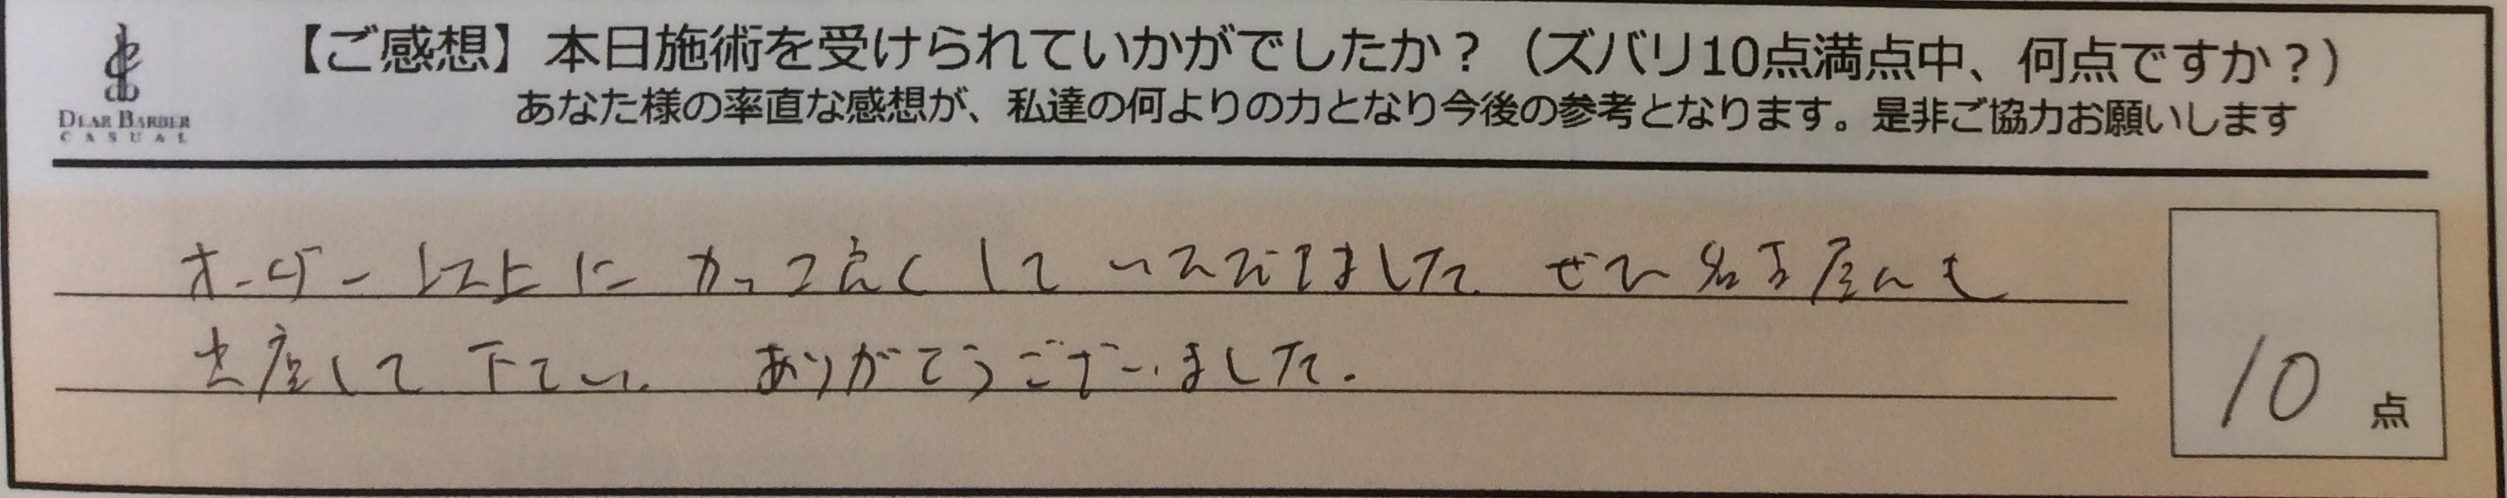 【ご感想】本日施術を受けられていかがでしたか？（ズバリ10点満点中、何点ですか？）
あなた様の率直な感想が、私達の何よりの力となり今後の参考となります。是非ご協力お願いします
DEAR BARBER
CASUAL
オーダー以上にカッコ良くしていただきました。ぜひ名古屋にも
出店して下さい。ありがとうございました。
10点